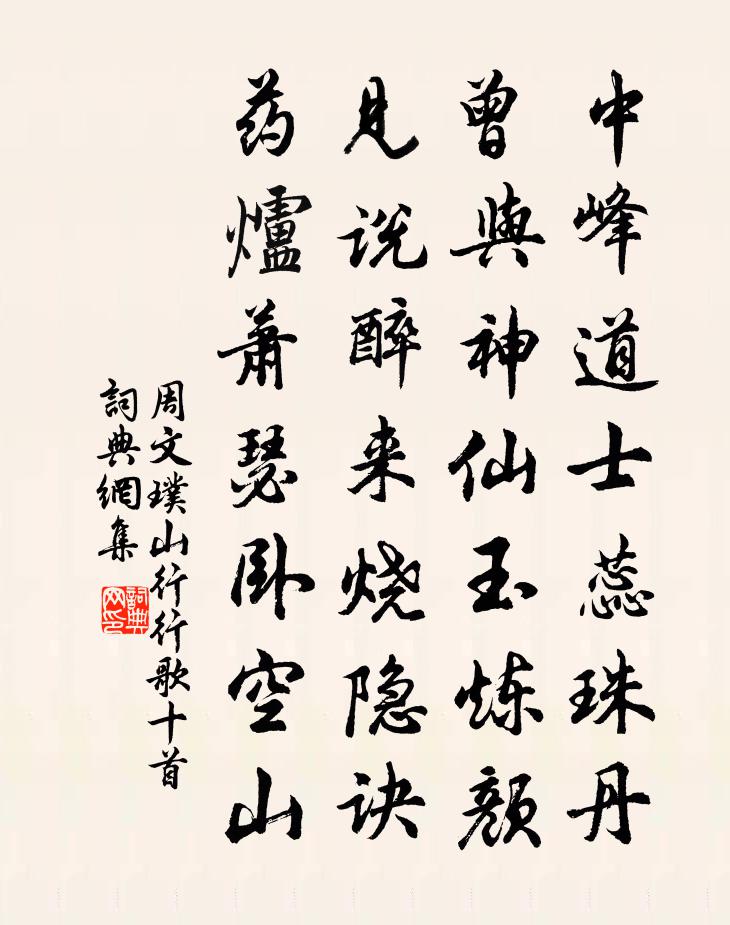 中峰道士蕊珠丹
曾與神仙玉炼颜
見说醉来烧隐诀
药爐萧瑟卧空山
周文璞山行行歌十首
詞典網集
詞典网印